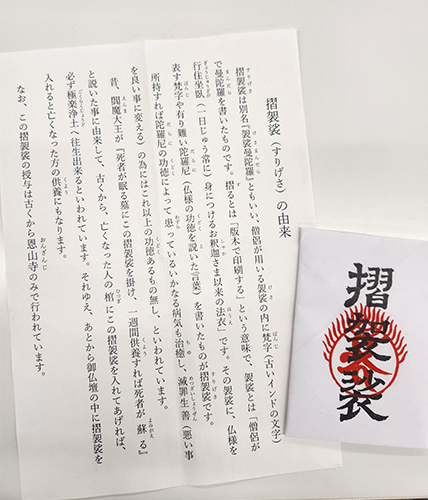 摺袈裟（すりげさ）の由来
摺袈裟は別名『袈裟曼陀羅』ともいい、僧侶が用いる袈裟の内に梵字(古いインドの文字)
で曼陀羅を書いたものです。摺るとは「版木で印刷する」という意味で、袈裟とは「僧侶が
行住坐臥（一日じゅう常に）身につけるお釈迦さま以来の法衣」です。その袈裟に、仏様を
表す梵字や有り難い陀羅尼（仏様の功徳を説いた言葉）を書いたものが摺袈裟です。
所持すれば陀羅尼の功徳によって患っているいかなる病気も治癒し、滅罪生善（悪い事
を良い事に変える）の為にはこれ以上の功徳あるもの無し、といわれています。
昔、閻魔大王が『死者が眠る墓にこの摺袈裟を掛け、一週間供養すれば死者が蘇る』
と説いた事に由来して、古くから、亡くなった人の棺にこの摺袈裟を入れてあげれば、
必ず極楽浄土へ往生出来るといわれています。それゆえ、あとから御仏壇の中に摺袈裟を
入れると亡くなった方の供養にもなります。
なお、この摺袈裟の授与は古くから恩山寺のみで行われています。
摺袈裟